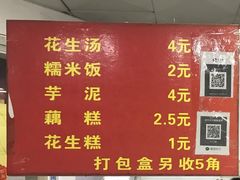 花生汤 4元
糯米饭 2元
芋泥 4元
藕糕 2.5元
花生糕 1元
打包盒另收5角